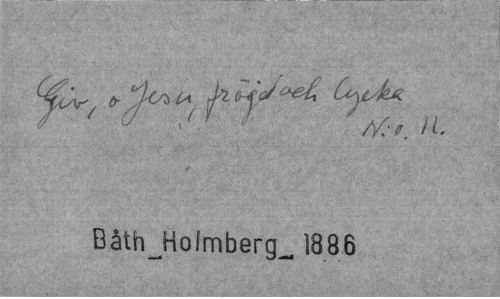 Giv, o Jesu, fröjd och lycka
N:o. 11.
Båth_Holmberg_ 1886